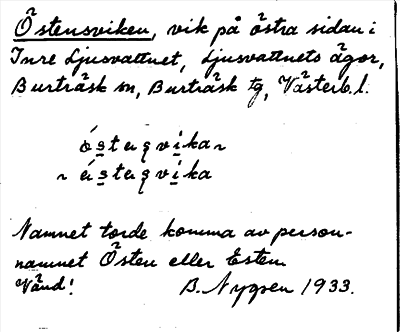 Östensviken, vik på östra sidan i
Inre Ljusvattnet, Ljusvattnets ägor,
Burträsk sn, Burträsk tg, Västerb. l.
ó̀stεqvika ~
~ éstεqvika
Namnet torde komma av person-
namnet Östen eller Esten.
Vänd! B. Nygren 1933.